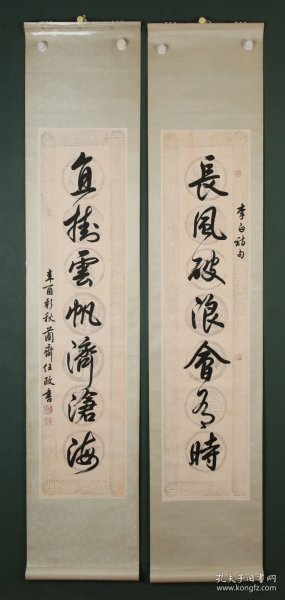 長風破浪會有時
李白詩句
直掛雲帆濟滄海
辛酉新秋蘭齋任政書
孔夫子旧书网
www.kongfz.com